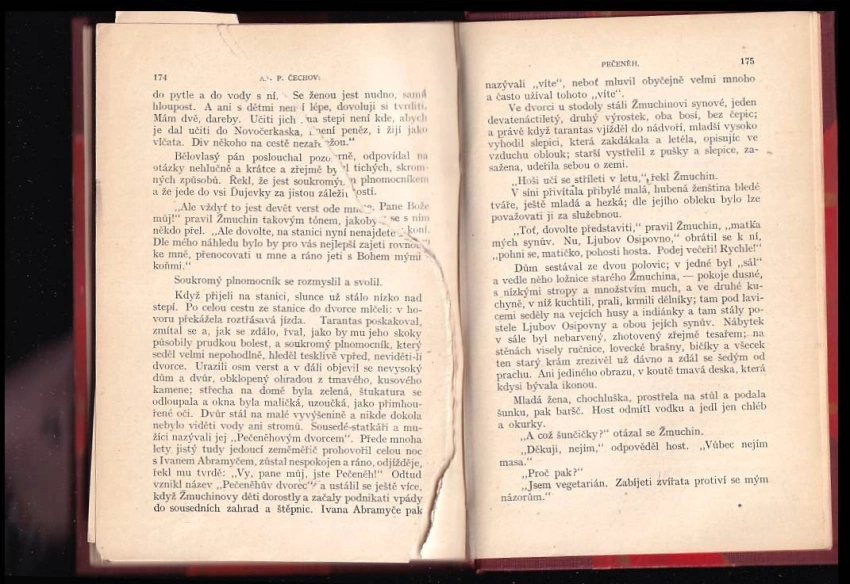 174
P. ČECHOV:
do pytle a do vody s ní. Se ženou jest nudno, samá
hloupost. A ani s dětmi není lépe, dovoluji si tvrditi.
Mám dvě, dareby. Učiti jich na stepi není kde, abych
je dal učiti do Novočerkaska, není peněz, i žijí jako
vlčata. Div někoho na cestě nezařežou.“
Bělovlasý pán poslouchal pozorně, odpovídal na
otázky nehlučně a krátce a zřejmě byl tichých, skrom-
ných způsobů. Řekl, že jest soukromým plnomocníkem
a že jede do vsi Ďujevky za jistou záležitostí.
„Ale vždyť to jest devět verst ode mne. Pane Bože
můj!“ pravil Žmuchin takovým tónem, jakoby se s ním
někdo přel. „Ale dovolte, na stanici nyní nenajdete koní.
Dle mého náhledu bylo by pro vás nejlepší zajeti rovnou
ke mně, přenocovati u mne a ráno jeti s Bohem mými
koňmi.“
Soukromý plnomocník se rozmyslil a svolil.
Když přijeli na stanici, slunce už stálo nízko nad
stepí. Po celou cestu ze stanice do dvorce mlčeli: v ho-
voru překážela roztřásavá jízda. Tarantas poskakoval,
zmítal se a, jak se zdálo, řval, jako by mu jeho skoky
působily prudkou bolest, a soukromý plnomocník, který
seděl velmi nepohodlně, hleděl tesklivě vpřed, neviděti-li
dvorce. Urazili osm verst a v dáli objevil se nevysoký
dům a dvůr, obklopený ohradou z tmavého, kusového
kamene; střecha na domě byla zelená, štukatura se
odloupala a okna byla maličká, uzoučká, jako přimhou-
řené oči. Dvůr stál na malé vyvýšenině a nikde dokola
nebylo viděti vody ani stromů. Sousedé-statkáři a mu-
žíci nazývali jej „Pečeněhovým dvorcem“. Přede mnoha
lety jistý tudy jedoucí zeměměřič prohovořil celou noc
s Ivanem Abramyčem, zůstal nespokojen a ráno, odjížděje,
řekl mu tvrdě: „Vy, pane můj, jste Pečeněh!“ Odtud
vznikl název „Pečeněhův dvorec“ a ustálil se ještě více,
když Žmuchinovy děti dorostly a začaly podnikati vpády
do sousedních zahrad a štěpnic. Ivana Abramyče pak
PEČENĚH.
175
nazývali „víte“, neboť mluvil obyčejně velmi mnoho
a často užíval tohoto „víte“.
Ve dvorci u stodoly stáli Žmuchinovi synové, jeden
devatenáctiletý, druhý výrostek, oba bosí, bez čepic;
a právě když tarantas vjížděl do nádvoří, mladší vysoko
vyhodil slepici, která zakdákala a letěla, opisujíc ve
vzduchu oblouk; starší vystřelil z pušky a slepice, za-
sažena, udeřila sebou o zemi.
„Hoši učí se stříleti v letu,“ řekl Žmuchin.
V síni přivítala přibylé malá, hubená ženština bledé
tváře, ještě mladá a hezká; dle jejího obleku bylo lze
považovati ji za služebnou.
„Toť, dovolte představiti,“ pravil Žmuchin, „matka
mých synův. Nu, Ljubov Osipovno,“ obrátil se k ní,
„pohni se, matičko, pohosti hosta. Podej večeři! Rychle!“
Dům sestával ze dvou polovic; v jedné byl „sál“
a vedle něho ložnice starého Žmuchina, — pokoje dusné,
s nízkými stropy a množstvím much, a ve druhé ku-
chyně, v níž kuchtili, prali, krmili dělníky; tam pod lavi-
cemi seděly na vejcích husy a indiánky a tam stály po-
stele Ljubov Osipovny a obou jejích synův. Nábytek
v sále byl nebarvený, zhotovený zřejmě tesařem; na
stěnách visely ručnice, lovecké brašny, bičíky a všecek
ten starý krám zrezivěl už dávno a zdál se šedým od
prachu. Ani jediného obrazu, v koutě tmavá deska, která
kdysi bývala ikonou.
Mladá žena, chochluška, prostřela na stůl a podala
šunku, pak baršč. Host odmítl vodku a jedl jen chléb
a okurky.
„A což šunčičky?“ otázal se Žmuchin.
„Děkuji, nejím,“ odpověděl host. „Vůbec nejím
masa.“
„Proč pak?“
„Jsem vegetarián. Zabíjeti zvířata protiví se mým
názorům.“